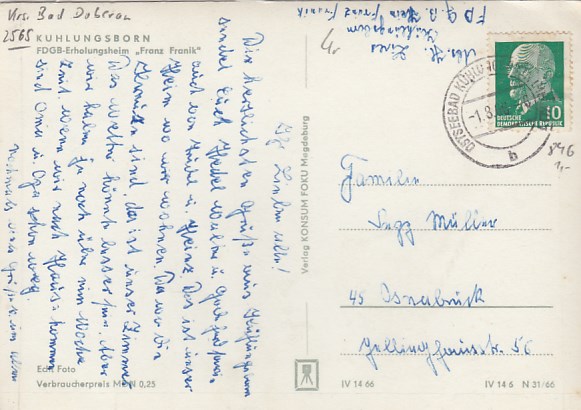 Krs. Bad Doberan
2565
KÜHLUNGSBORN
FDGB-Erholungsheim „Franz Franik"
Abs. H.
Kühlungsborn
Heim Franz Franik
OSTSEEBAD KÜHLUNGSBORN
-1.8.
b
DEUTSCHE
DEMOKRATISCHE REPUBLIK
10
846
1,-
4,-
Ihr Lieben alle!
Die herzlichsten Grüße aus Kühlungsborn
sendet Euch Hedel Walter u. Gerhard
auch von Trudel u. Heinz. Das ist unser
Heim wo wir wohnen. Da wo die
sind, da ist unser Zimmer.
Das Wetter könnte besser sein. Aber
wir haben ja noch über eine Woche
Zeit. Wenn wir nach Hause kommen
sind Oma u. Opa schon weg.
nochmals viele Grüße an
Verlag KONSUM FOKU Magdeburg
Familie
Sepp Müller
45 Osnabrück
56
Echt Foto
Verbraucherpreis MDN 0,25
IV 14 66
IV 14 6 N 31/66